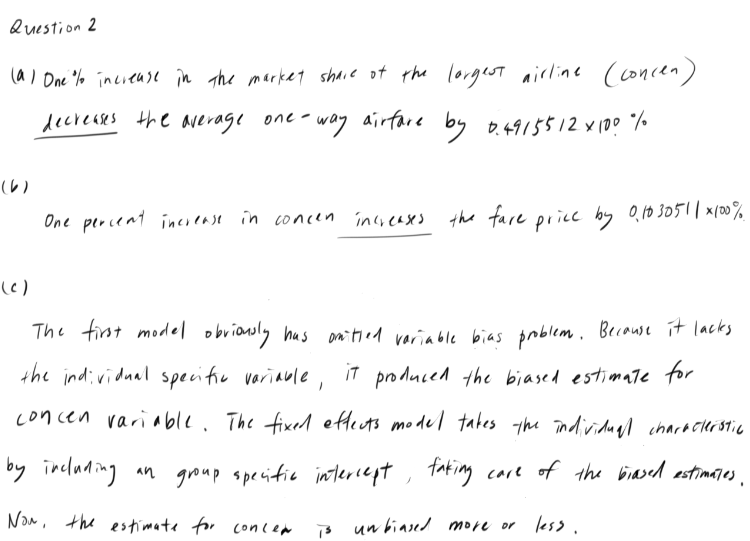 Question 2
(a) One % increase in the market share of the largest airline (concen)
decreases the average one-way airfare by 0.4915512 x 100 %
(b)
One percent increase in concen increases the fare price by 0.1030511 x100%.
(c)
The first model obviously has omitted variable bias problem. Because it lacks
the individual specific variable, it produced the biased estimate for
concen variable. The fixed effects model takes the individual characteristic
by including an group specific intercept, taking care of the biased estimates.
Now, the estimate for concen is unbiased more or less.